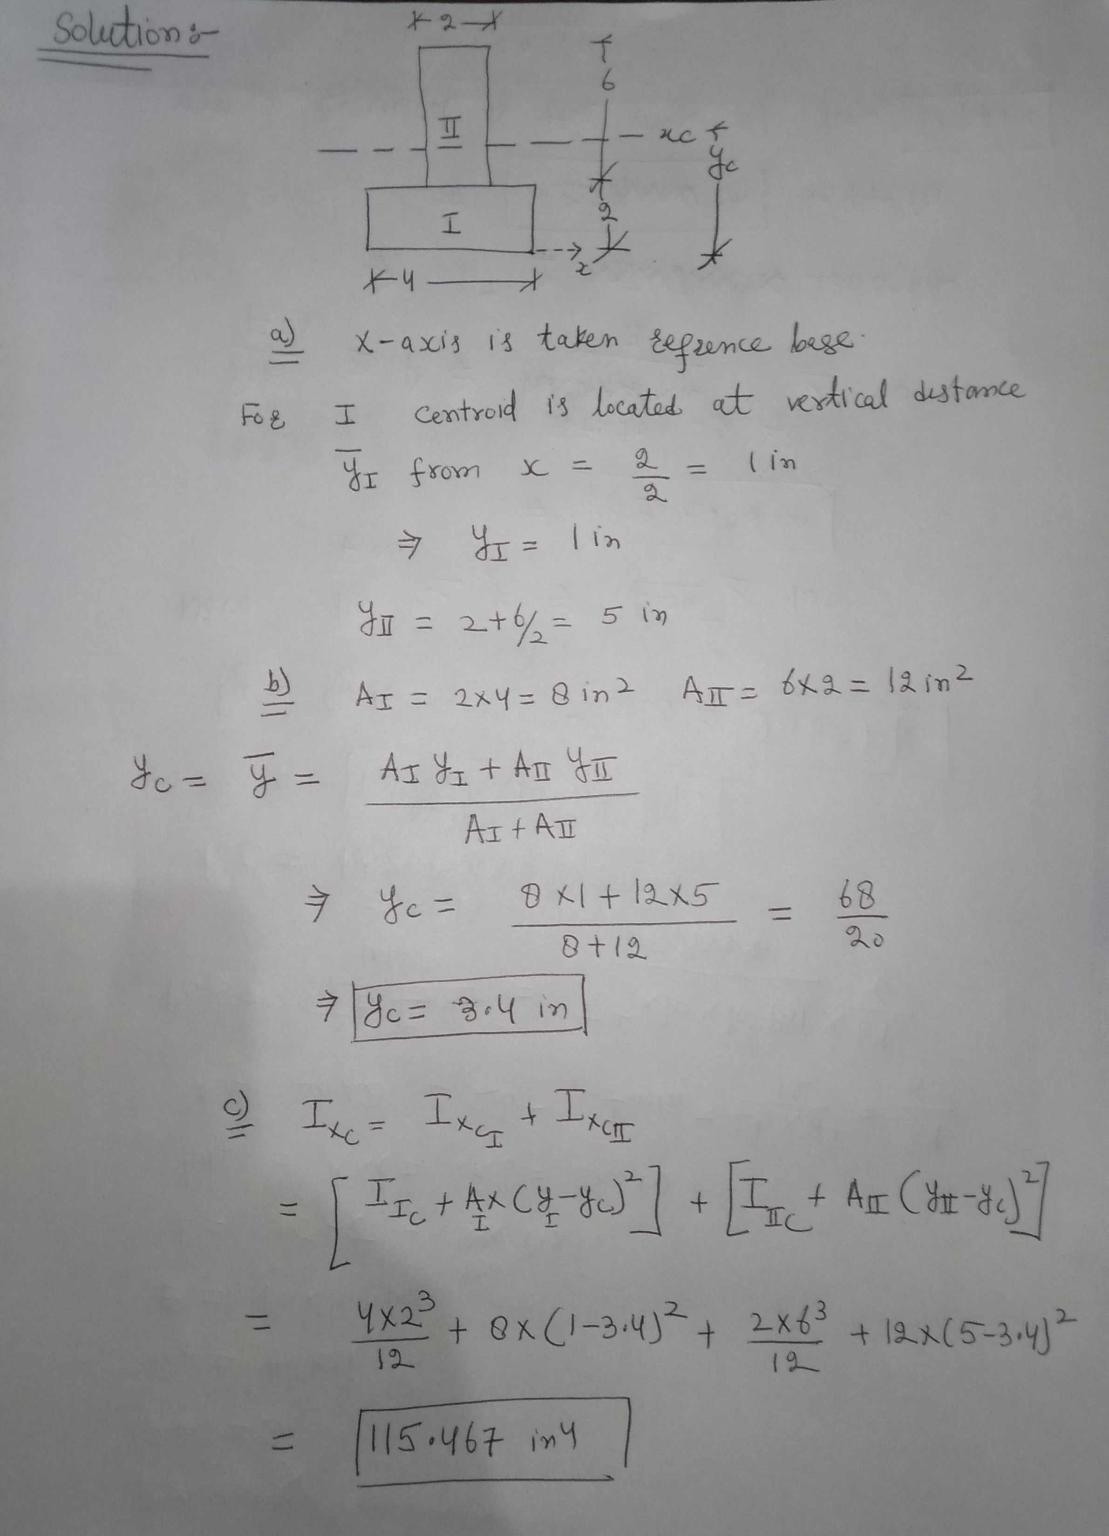 Solution:-
2
6
II
xc
yc
I
2
x
4
a) X-axis is taken refrence base.
For I centroid is located at vertical distance
ȳ_I from x = 2/2 = 1 in
⇒ y_I = 1 in
y_II = 2+6/2 = 5 in
b) A_I = 2×4 = 8 in² A_II = 6×2 = 12 in²
y_c = ȳ = (A_I y_I + A_II y_II) / (A_I + A_II)
⇒ y_c = (8×1 + 12×5) / (8+12) = 68/20
⇒ y_c = 3.4 in
c) I_xc = I_xc_I + I_xc_II
= [I_Ic + A_I × (y_I - y_c)²] + [I_IIc + A_II (y_II - y_c)²]
= 4×2³/12 + 8×(1-3.4)² + 2×6³/12 + 12×(5-3.4)²
= 115.467 in4